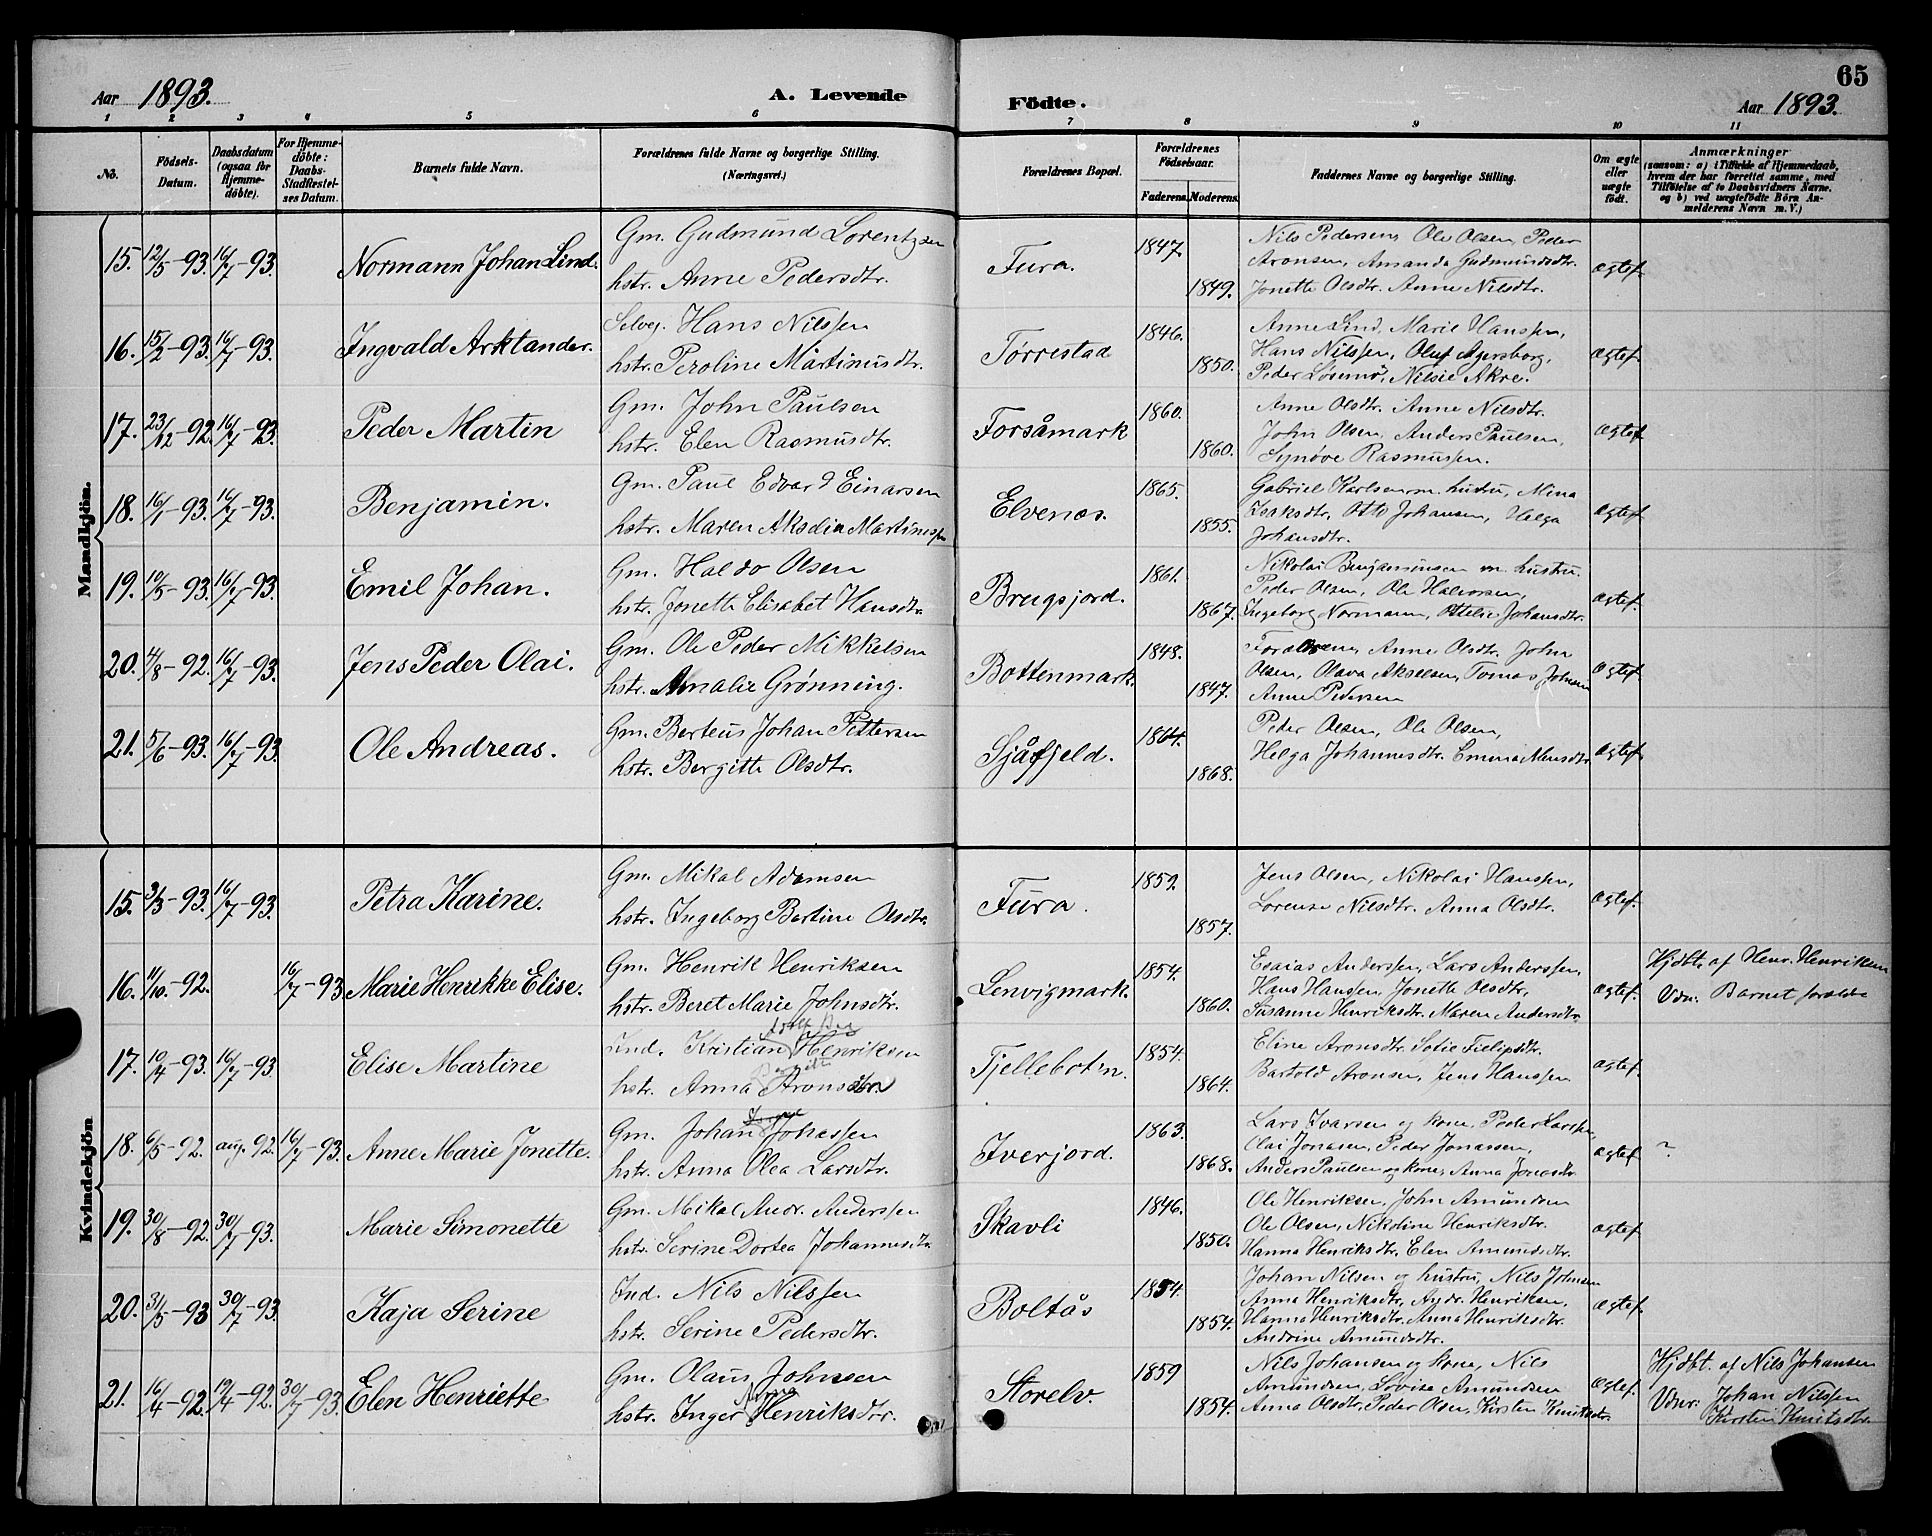 65
Aar 1893. A. Levende Födte. Aar 1893.
1 2 3 4 5 6 7 8 9 10 11
No. Födsels-Datum. Daabsdatum (ogsaa for Hjemme-döbte). For Hjemme-döbte: Daabs-Stadfæstel-ses Datum. Barnets fulde Navn. Forældrenes fulde Navne og borgerlige Stilling. (Næringsvei.) Forældrenes Bopæl. Forældrenes Födselsaar. Faderens. Moderens. Faddernes Navne og borgerlige Stilling. Om ægte eller uægte født. Anmærkninger (saasom: a) i Tilfælde af Hjemmedaab, hvem der har forrettet samme, med Tilföielse af to Daabsvidners Navne, og b) ved uægtefödte Börn An-melderens Navn m.V.)
Mandkjön.
15. 12/5-93. 16/7-93. Normann Johan Lind. Gm. Gudmund Lorentzsen Fura. 1847. Nils Pedersen, Ole Olsen, Peder
hstr. Anne Pedersdtr. 1849. Aronsen, Amanda Gudmundsdtr. Ægtef.
Jonette Olsdtr. Anne Nilsdtr.
16. 15/2-93. 16/7-93. Ingvald Arktander. Selvej. Hans Nilssen Torrestad 1846. Anne Lind, Marie Hanssen,
hstr. Peroline Martinusdtr. 1850. Hans Nilssen, Oluf Agersborg, Ægtef.
Peder Nilsie Akre.
17. 23/12-92. 16/7-93. Peder Martin Gm. John Paulsen Forsåmark 1860. Anne Olsdtr. Anne Nilsdtr.
hstr. Elen Rasmusdtr. 1860. John Olsen, Anders Paulsen, Ægtef
Synöve Rasmussen.
18. 16/1-93. 16/7-93. Benjamin. Gm. Paul Edvard Einarsen Elvenes. 1865. Gabriel Karlsen m. hustru, Mina
hstr. Maren Aksdin Martinessen 1855. Otto Johansen, Helga Ægtef
Johansdtr.
19. 10/5-93. 16/7-93. Emil Johan. Gm. Haldo Olsen Brugsjord. 1861. Nikolai Benjaminsen m. hustru.
hstr. Jonette Elisabet Hansdtr 1867. Peder Olsen, Ole Halvorsen, Ægtef.
Ingeborg Normann, Ottelie Johansdtr.
20. 4/8-92. 16/7-93. Jens Peder Olai. Gm. Ole Peder Mikkelsen Bottenmark. 1848. Anne Olsdtr. John
hstr. Amalie Grønning. 1847. Olsen, Olava Akselsen, Tomas Johnsen Ægtef.
Anne Pedersen
21. 5/6-93. 16/7-93. Ole Andreas. Gm. Berteus Johan Pettersen Sjåfjeld. 1864. Peder Olsen, Ole Olsen,
hstr. Bergitte Olsdtr. 1868. Helga Johannesdtr. Emma Monsdtr. Ægtef.
Kvindekjön
15. 3/3-93. 16/7-93. Petra Karine. Gm. Mikal Adamsen Fura. 1859. Jens Olsen, Nikolai Hanssen,
hstr. Ingeborg Bertine Olsdtr. 1857. Lorense Nilsdtr. Anna Olsdtr. Ægtef.
16. 11/10-92. 16/7-93 Marie Henrikke Elise. Gm. Henrik Henriksen Lenvigmark. 1854. Esaias Anderssen, Lars Anderssen, Hjdbt. af Henr. Henriksen
hstr. Beret Marie Johnsdtr. 1860. Hans Hansen, Jonette Olsdtr, Ægtef. Vdn: Barnet forældre
Susanne Henriksdtr. Maren Andersdtr.
17. 10/4-93. 16/7-93 Elise Martine Ind. Kristian Henriksen Fjellebotn. 1854. Eline Aronsdtr. Sofie Fielipsdtr.
hstr. Anna Aronsdtr. 1864. Bartold Aronsen, Jens Hanssen Ægtef.
18. 6/5-92. aug. 92. 16/7-93. Anne Marie Jonette. Gm. Johan Johassen Iverjord. 1863. Lars Ivarsen og kone, Peder Larssen,
hstr. Anna Olea Larsdtr. 1868. Olai Jonasen, Peder Jonassen, Ægtef. ~.
Anders Paulsen og kone, Anna Jonasdtr.
19. 30/8-92. 30/7-93. Marie Simonette Gm. Mikal Andr. Anderssen Skavli 1846. Ole Henriksen, John Amundsen
hstr. Serine Dortea Johannesdtr. 1850. Ole Olsen, Nikoline Henriksdtr. Ægtef.
Hanna Henriksdtr, Elen Amundsdtr.
20. 31/5-93 30/7-93. Kaja Serine Ind. Nils Nilssen Boltås 1854. Johan Nilsen og hustru, Nils Johnsen
hstr. Serine Pedersdtr. 1854. Anna Henriksdtr, Andr. Henriksen, Ægtef.
Hanna Henriksdtr. Anna Henriksdtr.
Andrine Amundsdtr.
21. 16/4-92. 19/4-92. 30/7-93. Elen Henriette Gm. Olaus Johnsen Storelv. 1859 Nils Johansen og kone, Nils Hjdbt. af Nils Johansen
hstr. Inger Anna Henriksdtr. 1854. Amundsen, Lovise Amundsen Ægtef. Vdnr: Johan Nilssen
Anna Olsdtr, Peder Olsen, Kirsten Knutsdtr. Kirsten Knutsdtr.